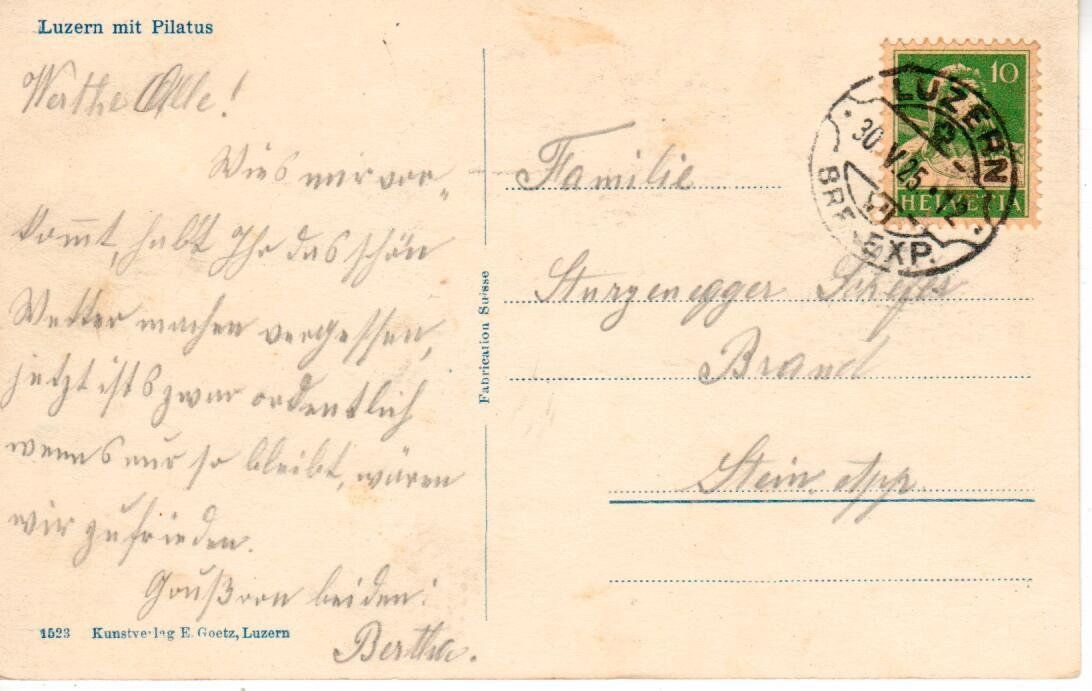 Luzern mit Pilatus
Werthe Alle!
Wies mir vor-
kommt, habt Ihr das schön
Wetter machen vergessen,
jetzt ists zwar ordentlich
wenns nur so bleibt, wären
wir zufrieden.
Gruß von beiden:
Bertha.
1523 Kunstverlag E. Goetz, Luzern
Fabrication Suisse
10
HELVETIA
LUZERN
30.V.25
BRF. EXP.
Familie
Sturzenegger
Brand
Stein. App.